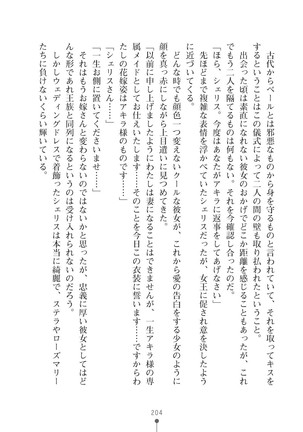 古代からベールとは邪悪なものから身を守るものと言われていて、それを取ってキス
をするということはこの儀式によって二人の間の壁も払われたということ。
出会った頃は素直になれない彼女のおかげでどこか距離を感じることもあったが、
もう二人を隔てるものはない。それを確認し合ったのだ。
「ほら、シェリス。今度はあなたがアキラに返事をしてあげなさい」
先ほどまで複雑な表情を浮かべていたシェリスだったが、女王に促され意を決したよう
に近づいてくる。
どんな時でも顔色一つ変えないクールな彼女が、これから愛の告白をする少女のように
顔を真っ赤にしながら上目遣いに見つめてきた。
「以前に申し上げましたようにわたしは妻になることはできませんが、一生アキラ様の専
属メイドとしてお仕えいたします……そのことを今日この衣装に誓います……ですからわ
たしの花嫁姿はアキラ様のものです……」
「シェリスさん……」
「一生お側に置いてくださいませ……」
それはもうお嫁さんと変わらないのではないかと思ったが、忠義に厚い彼女としてはど
んな形であれ王族と同列になるというのは受け入れられないのだろう。
しかしウェディングドレスで着飾ったシェリスは本当に綺麗で、ステラやローズマリー
たちに負けないくらい輝いている。
204